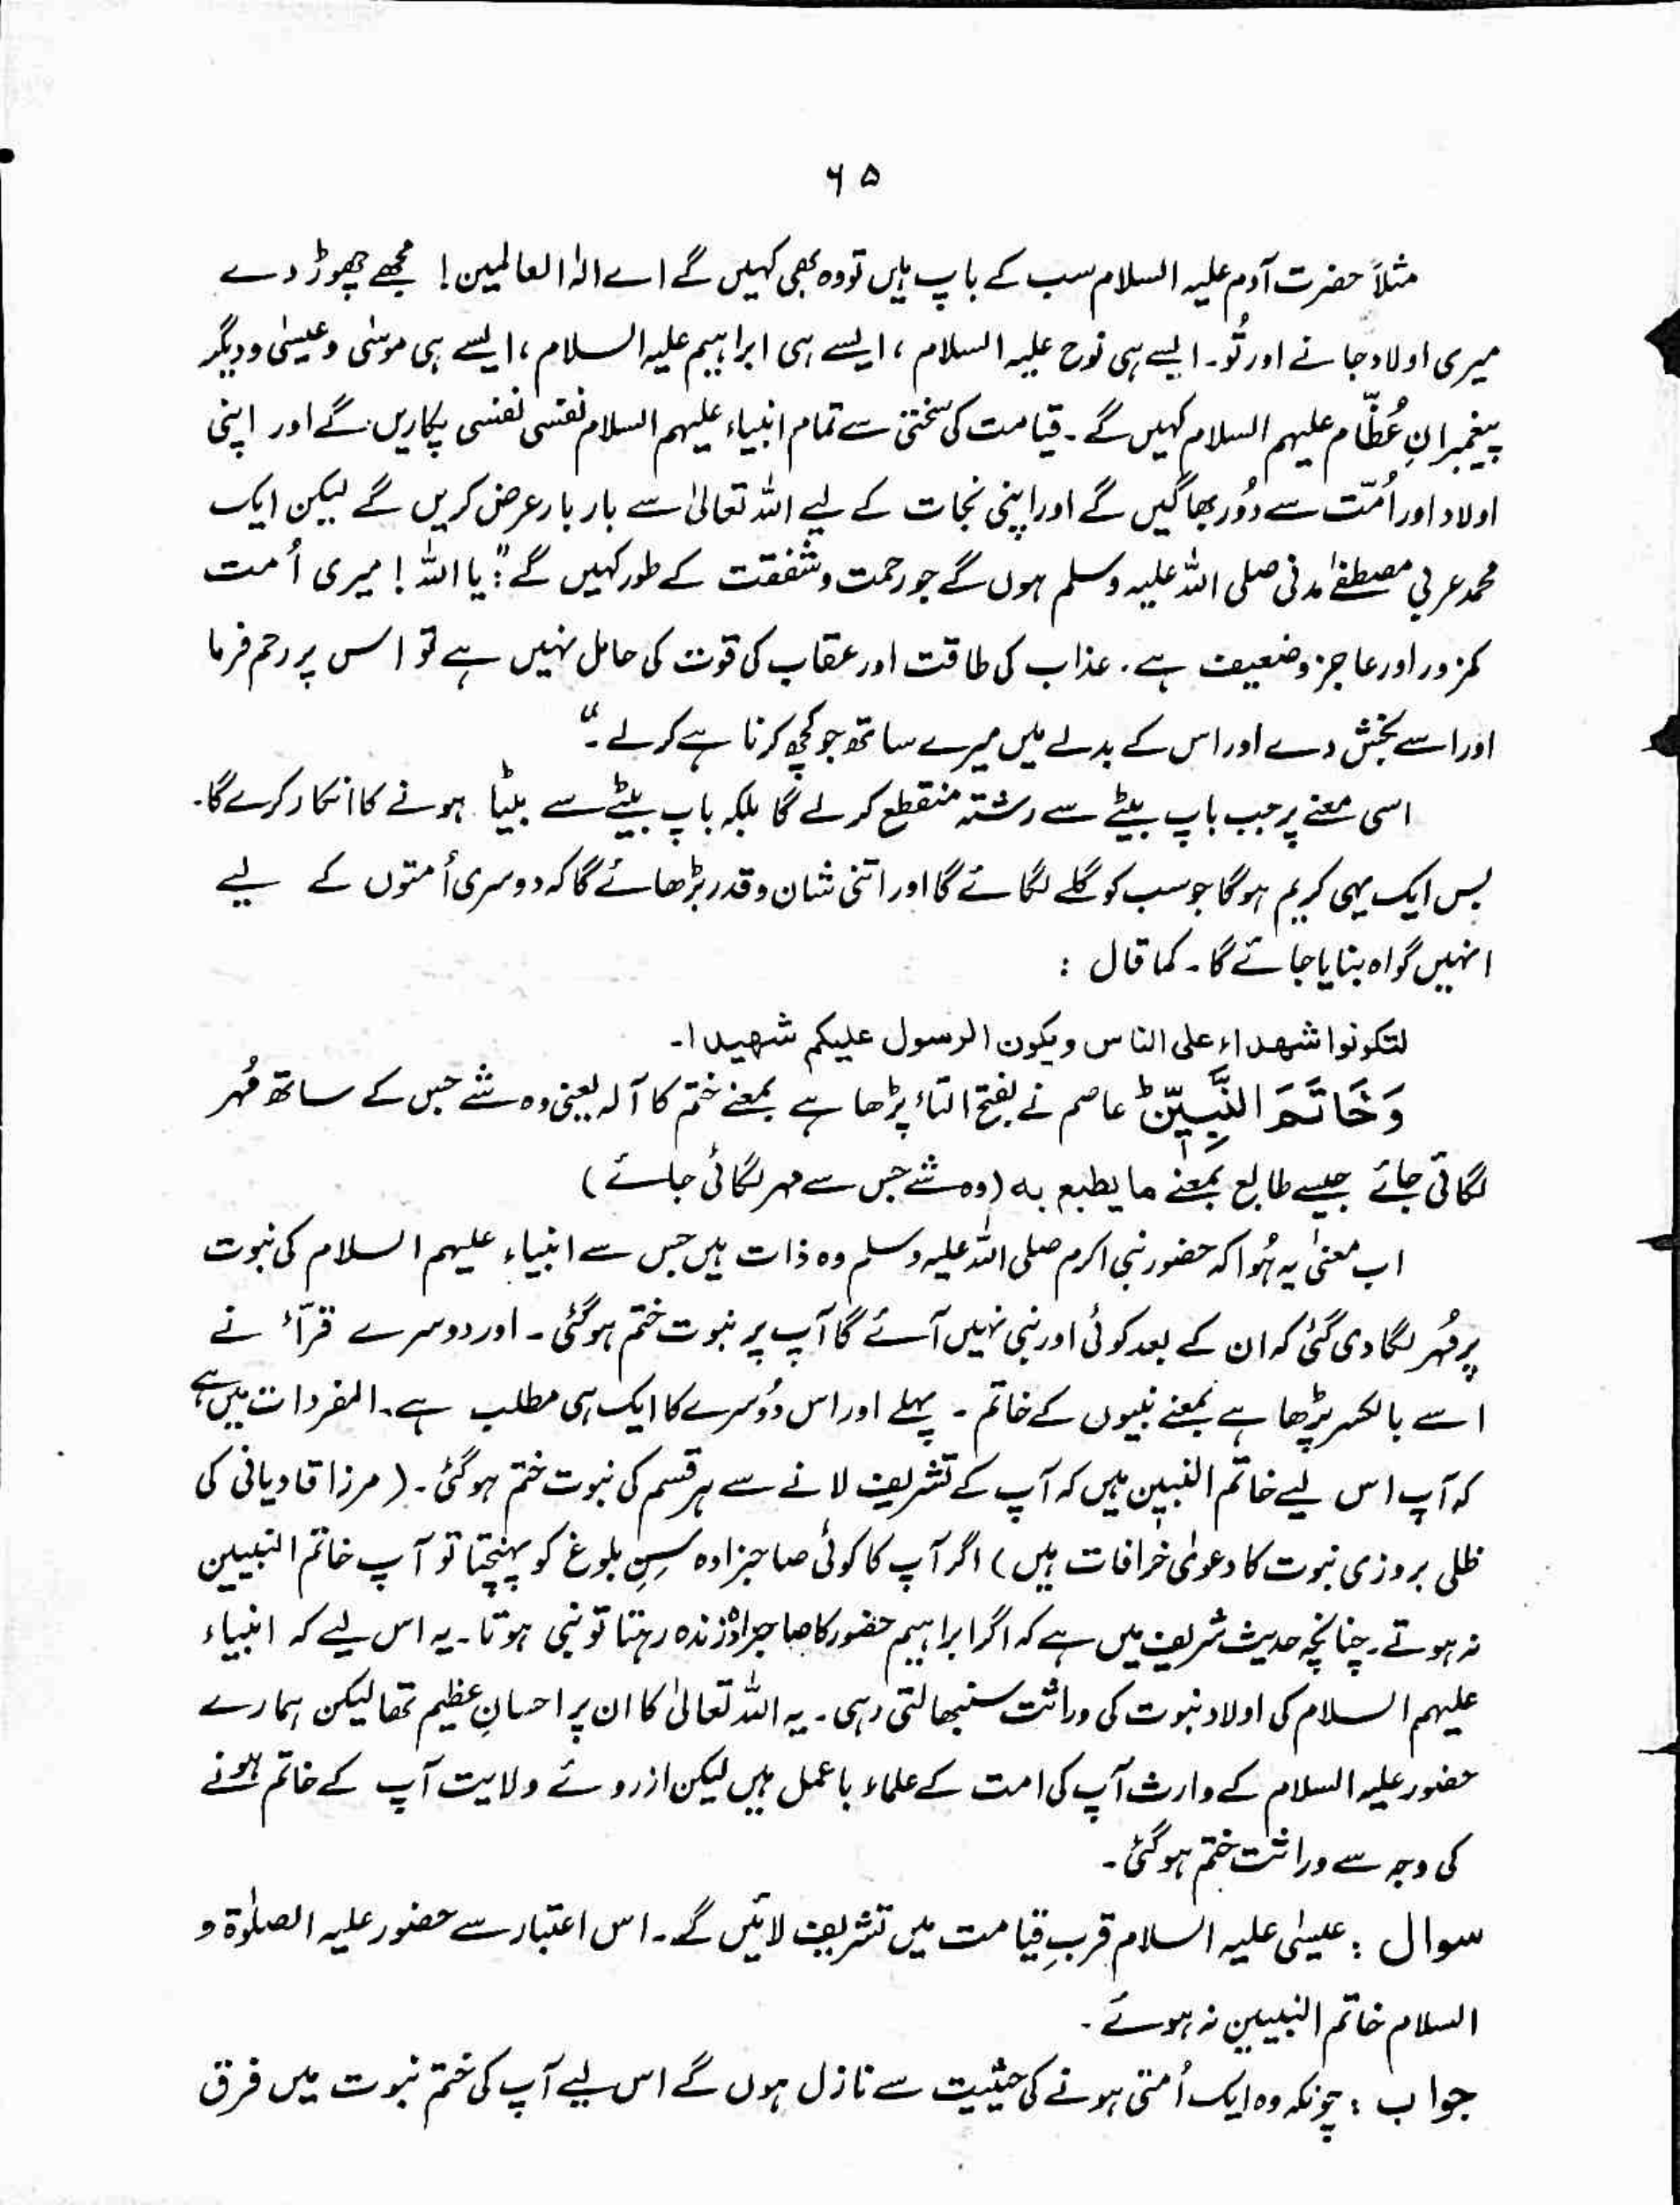 ۶۵
مثلاً حضرت آدم علیہ السلام سب کے باپ ہیں تو وہ بھی کہیں گے اے الٰہ العالمین! مجھے چھوڑ دے
میری اولاد جانے اور تُو۔ ایسے ہی نوح علیہ السلام، ایسے ہی ابراہیم علیہ السلام، ایسے ہی موسٰی و عیسٰی و دیگر
پیغمبرانِ عُظّام علیہم السلام کہیں گے۔ قیامت کی سختی سے تمام انبیاء علیہم السلام نفسی نفسی پکاریں گے اور اپنی
اولاد اور اُمّت سے دُور بھاگیں گے اور اپنی نجات کے لیے اللہ تعالیٰ سے بار بار عرض کریں گے لیکن ایک
محمد عربی مصطفےٰ مدنی صلی اللہ علیہ وسلم ہوں گے جو رحمت و شفقت کے طور کہیں گے: "یا اللہ! میری اُمت
کمزور اور عاجز و ضعیف ہے۔ عذاب کی طاقت اور عقاب کی قوت کی حامل نہیں ہے تو اس پر رحم فرما
اور اسے بخش دے اور اس کے بدلے میں میرے ساتھ جو کچھ کرنا ہے کرلے۔"
اسی معنے پر جب باپ بیٹے سے رشتہ منقطع کرلے گا بلکہ باپ بیٹے سے بیٹا ہونے کا انکار کرے گا۔
بس ایک یہی کریم ہوگا جو سب کو گلے لگائے گا اور اتنی شان و قدر بڑھائے گا کہ دوسری اُمتوں کے لیے
انہیں گواہ بنایا جائے گا۔ کما قال :
لتکونوا شھداء علی الناس ویکون الرسول علیکم شھیدا۔
وَخَاتَمَ النَّبِیّٖنَ ؕ عاصم نے بفتح التاء پڑھا ہے بمعنے ختم کا آلہ یعنی وہ شے جس کے ساتھ مُہر
لگائی جائے جیسے طابع بمعنے ما یطبع بہ (وہ شے جس سے مہر لگائی جائے)
اب معنیٰ یہ ہُوا کہ حضور نبی اکرم صلی اللہ علیہ وسلم وہ ذات ہیں جس سے انبیاء علیہم السلام کی نبوت
پر مُہر لگا دی گئی کہ ان کے بعد کوئی اور نبی نہیں آئے گا آپ پر نبوت ختم ہوگئی۔ اور دوسرے قرّاء نے
اسے بالکسر پڑھا ہے بمعنے نبیوں کے خاتم۔ پہلے اور اس دُوسرے کا ایک ہی مطلب ہے۔ المفردات میں ہے
کہ آپ اس لیے خاتم النبیین ہیں کہ آپ کے تشریف لانے سے ہر قسم کی نبوت ختم ہوگئی۔ (مرزا قادیانی کی
ظلی بروزی نبوت کا دعوٰی خرافات ہیں) اگر آپ کا کوئی صاحبزادہ سِنِ بلوغ کو پہنچتا تو آپ خاتم النبیین
نہ ہوتے۔ چنانچہ حدیث شریف میں ہے کہ اگر ابراہیم حضور کا صاحبزادہ زندہ رہتا تو نبی ہوتا۔ یہ اس لیے کہ انبیاء
علیہم السلام کی اولاد نبوت کی وراثت سنبھالتی رہی۔ یہ اللہ تعالیٰ کا ان پر احسانِ عظیم تھا لیکن ہمارے
حضور علیہ السلام کے وارث آپ کی امت کے علماء باعمل ہیں لیکن ازروئے ولایت آپ کے خاتم ہونے
کی وجہ سے وراثت ختم ہوگئی۔
سوال : عیسٰی علیہ السلام قربِ قیامت میں تشریف لائیں گے۔ اس اعتبار سے حضور علیہ الصلوٰۃ و
السلام خاتم النبیین نہ ہوئے۔
جواب : چونکہ وہ ایک اُمتی ہونے کی حیثیت سے نازل ہوں گے اس لیے آپ کی ختم نبوت میں فرق